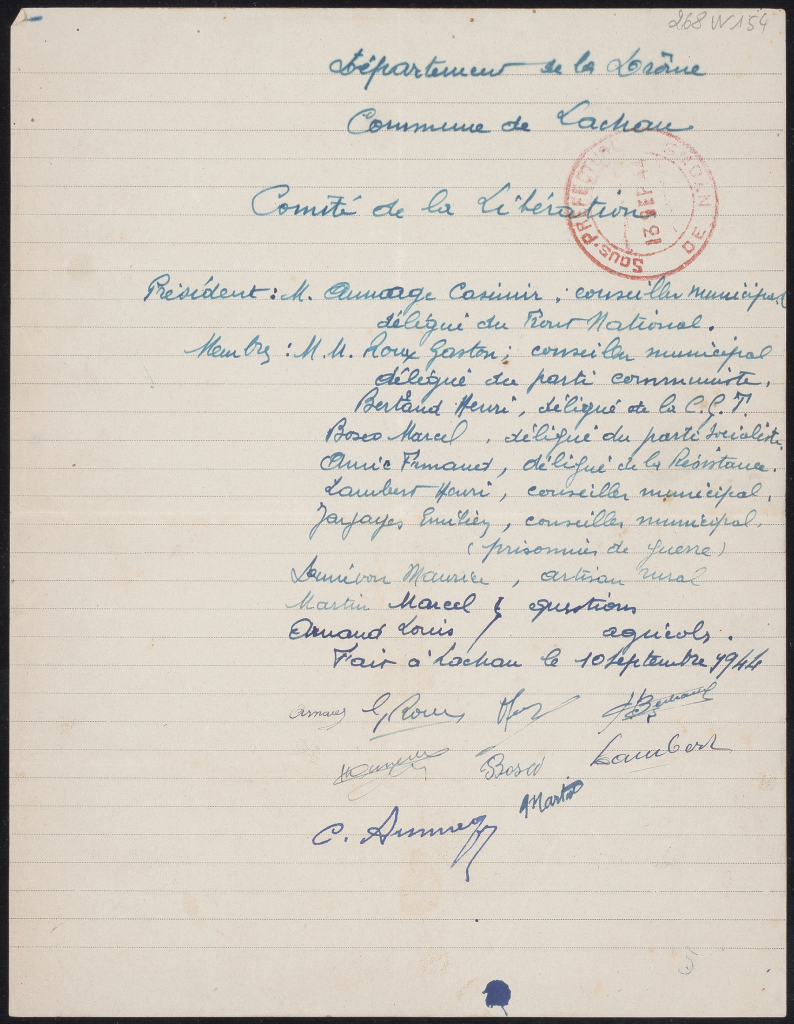 268 W 154
Département de la Drôme
Commune de Lachau
SOUS-PRÉFECTURE DE
Comité de la Libération
Président : M. Aumage Casimir, conseiller municipal
délégué du Front National.
Membres : M.M. Roux Gaston ; conseiller municipal
délégué du parti communiste.
Bertrand Henri, délégué de la C.G.T.
Bosco Marcel, délégué du parti socialiste.
Amic Fernand, délégué de la Résistance.
Lambert Henri, conseiller municipal.
Jarjayes Emilien, conseiller municipal.
(prisonnier de guerre)
Maurice, artisan rural
Martin Marcel questions
Arnaud Louis / agricols.
Fait à Lachau le 10 septembre 1944
Arnaud G Roux HBertrand
Bosco Lambert
Martin
C. Aumage